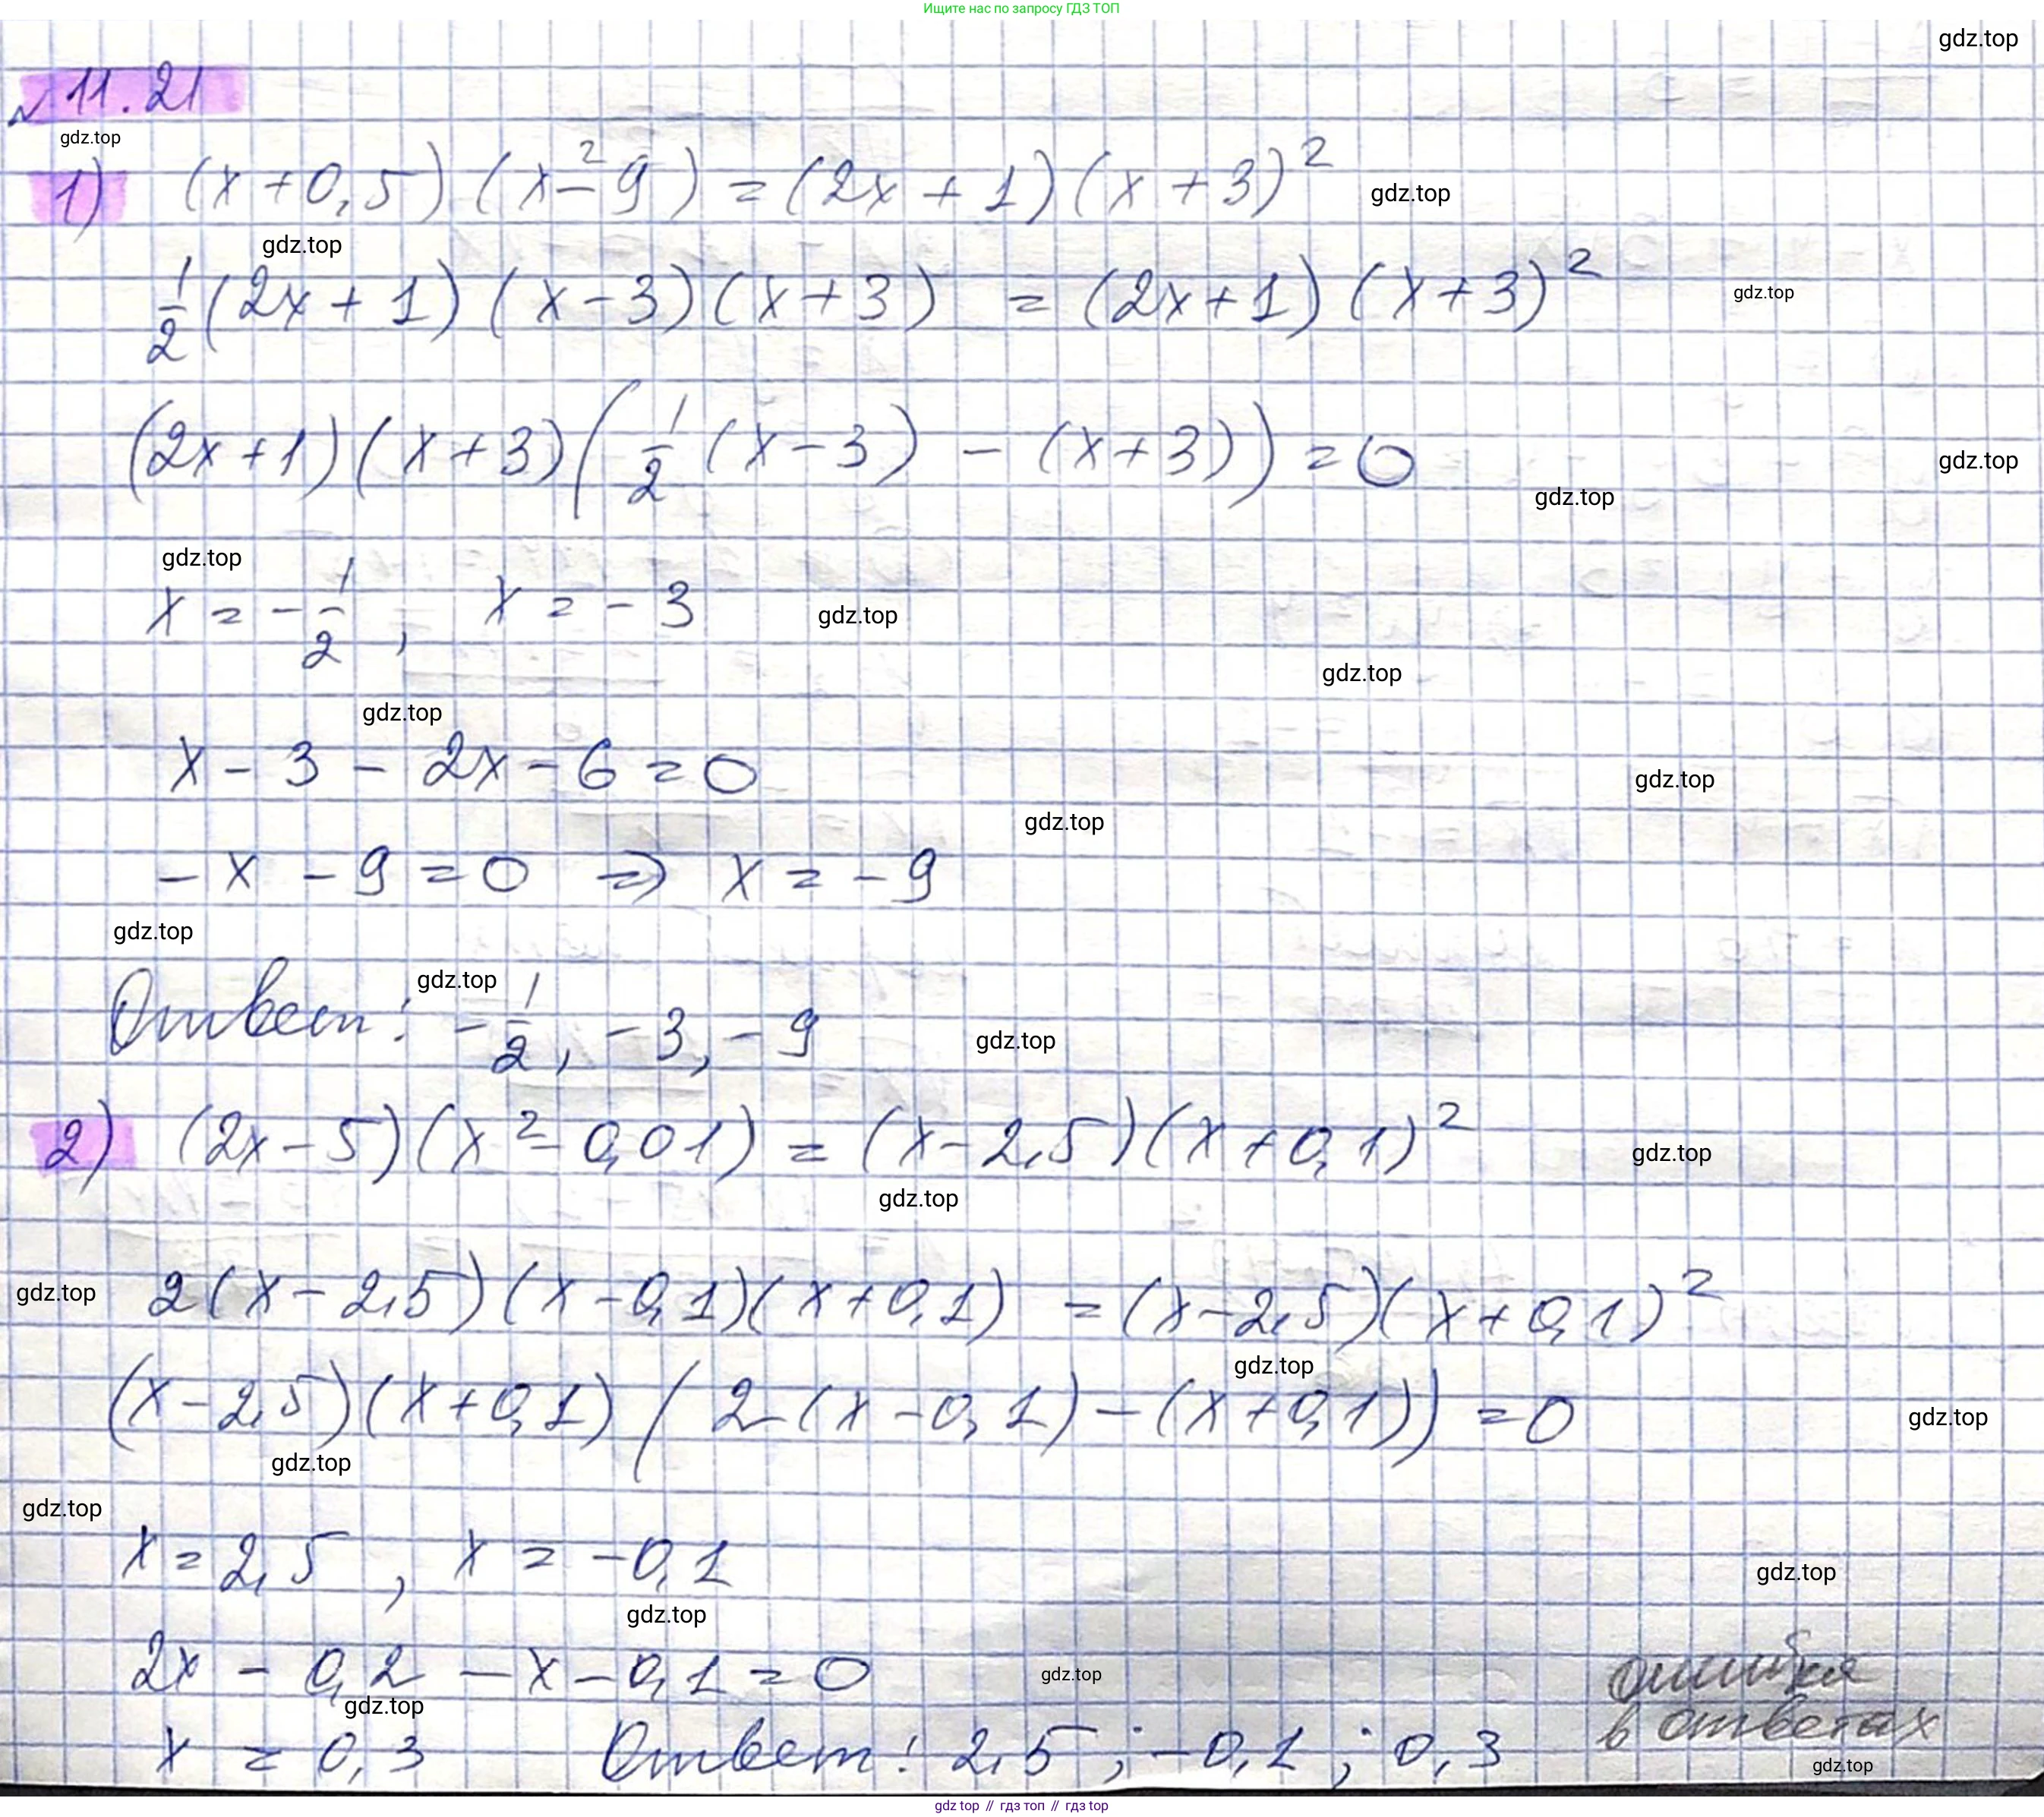 Ищите нас по запросу ГДЗ ТОП
gdz.top
№ 11.21
gdz.top
1) (x + 0,5)(x² - 9) = (2x + 1)(x + 3)²
gdz.top
gdz.top
½(2x + 1)(x - 3)(x + 3) = (2x + 1)(x + 3)²
gdz.top
(2x + 1)(x + 3)(½(x - 3) - (x + 3)) = 0
gdz.top
gdz.top
gdz.top
x = -½, x = -3
gdz.top
gdz.top
gdz.top
x - 3 - 2x - 6 = 0
gdz.top
gdz.top
-x - 9 = 0 => x = -9
gdz.top
gdz.top
Ответ: -½, -3, -9
gdz.top
2) (2x - 5)(x² - 0,01) = (x - 2,5)(x + 0,1)²
gdz.top
gdz.top
gdz.top
2(x - 2,5)(x - 0,1)(x + 0,1) = (x - 2,5)(x + 0,1)²
gdz.top
(x - 2,5)(x + 0,1)(2(x - 0,1) - (x + 0,1)) = 0
gdz.top
gdz.top
gdz.top
x = 2,5, x = -0,1
gdz.top
gdz.top
2x - 0,2 - x - 0,1 = 0
gdz.top
ошибка
gdz.top
в ответах
x = 0,3 Ответ: 2,5; -0,1; 0,3
gdz.top
gdz top // гдз топ // гдз top